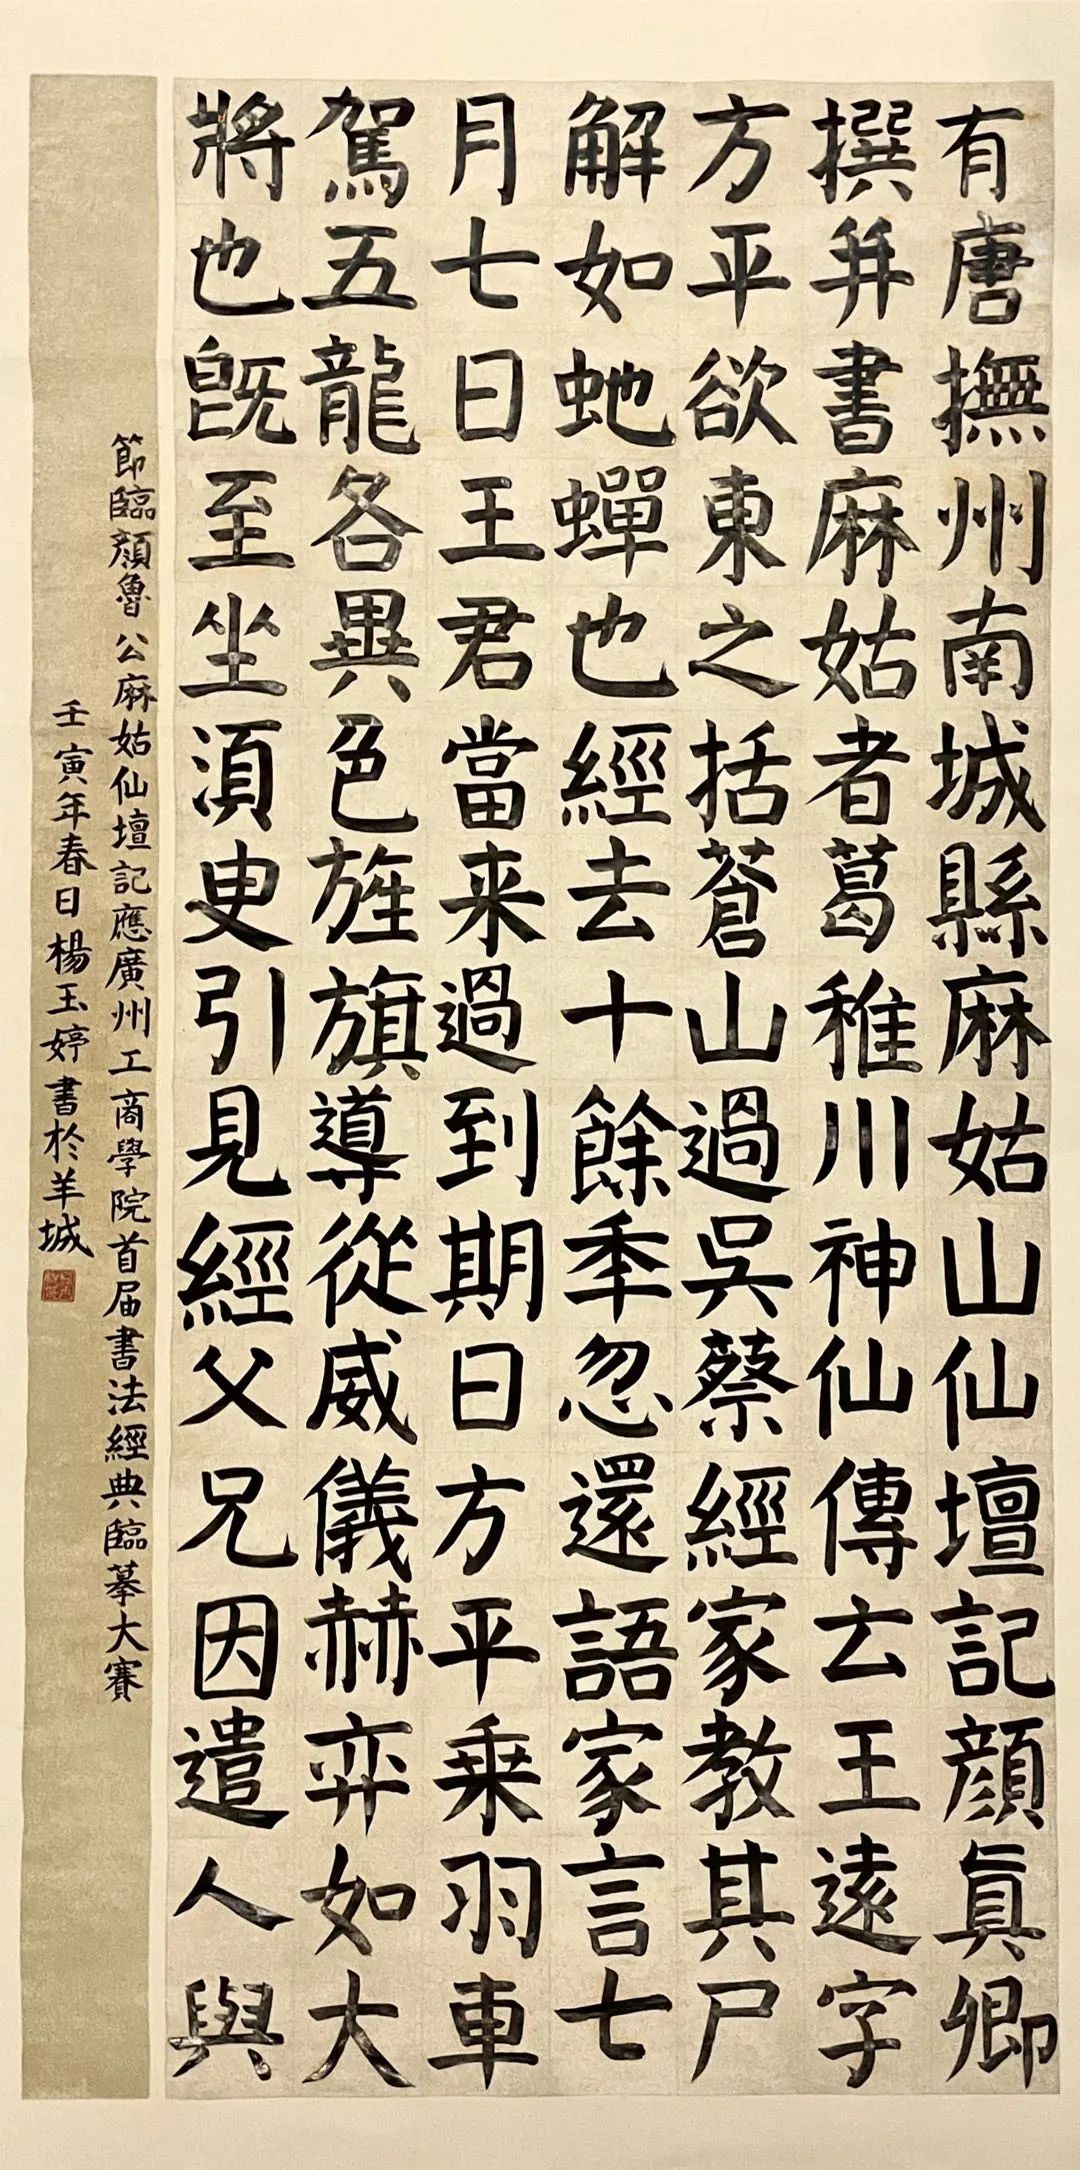 有唐撫州南城縣麻姑山仙壇記顏真卿
撰并書麻姑者葛稚川神仙傳云王遠字
方平欲東之括蒼山過吳蔡經家教其尸
解如虵蟬也經去十餘秊忽還語家言七
月七日王君當来過到期日方平乗羽車
駕五龍各異色旌旗導從威儀赫弈如大
將也旣至坐湏臾引見經父兄因遣人與
節臨顏魯公麻姑仙壇記應廣州工商學院首届書法經典臨摹大賽
壬寅年春日楊玉婷書於羊城